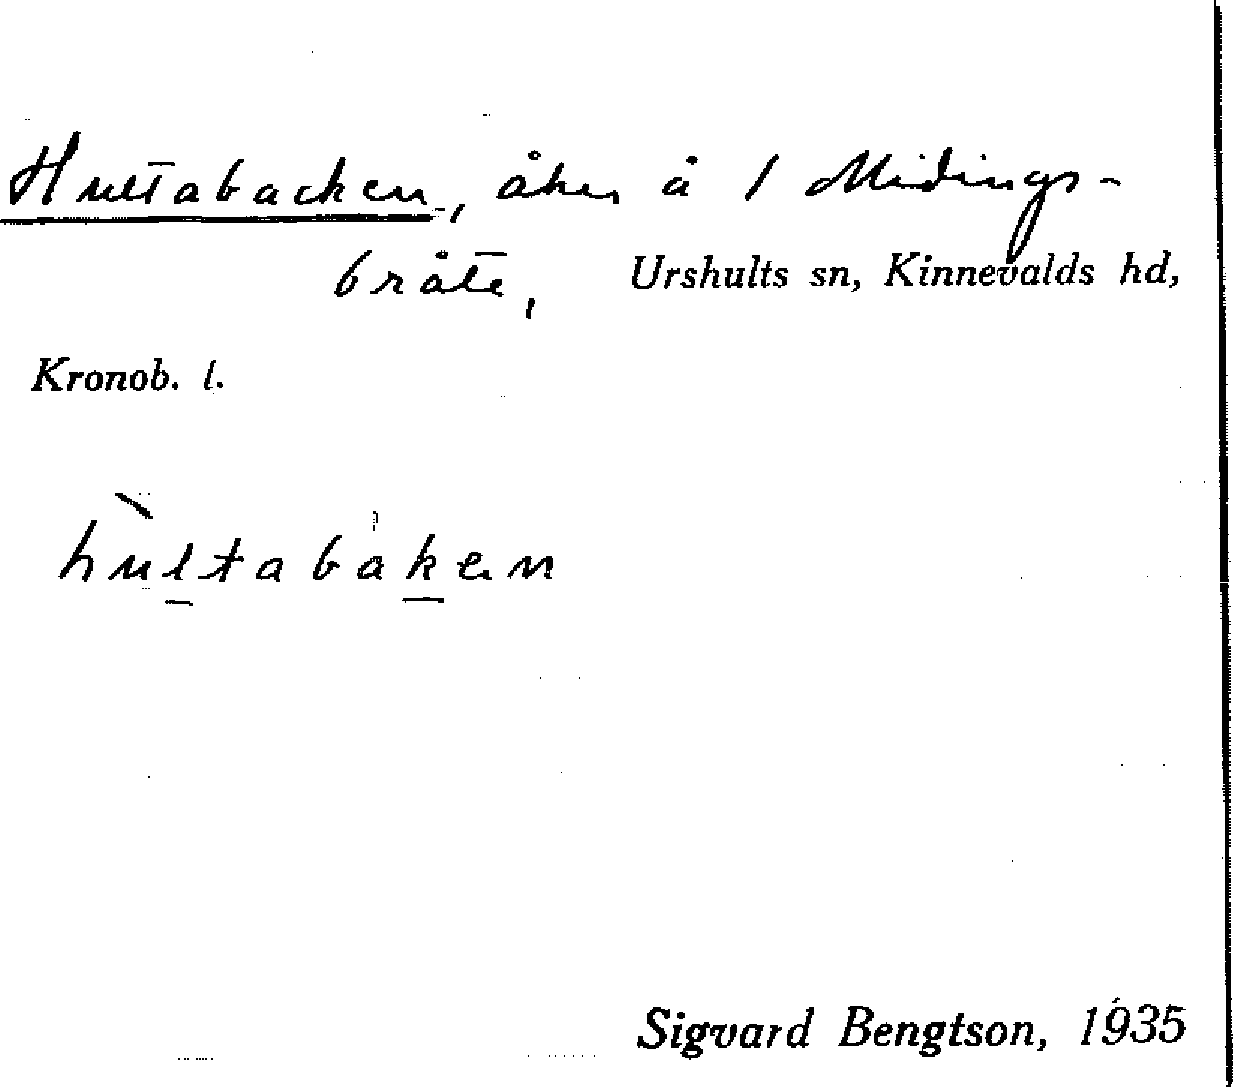 Hultabacken, åker å 1 Midings-
bråte, Urshults sn, Kinnevalds hd,
Kronob. l.
hùltabaken
Sigvard Bengtson, 1935